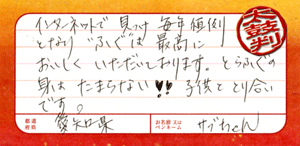 インターネットで見つけ毎年恒例
となり"ふぐ"は最高に
おいしくいただいております。とらふぐの
身はたまらない!! 子供ととり合い
です。
太鼓判
都道府県
愛知県
お名前又はペンネーム
サブちゃん